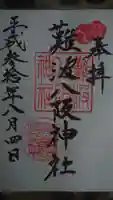 奉拝
難波八阪神社
平成参拾年八月四日